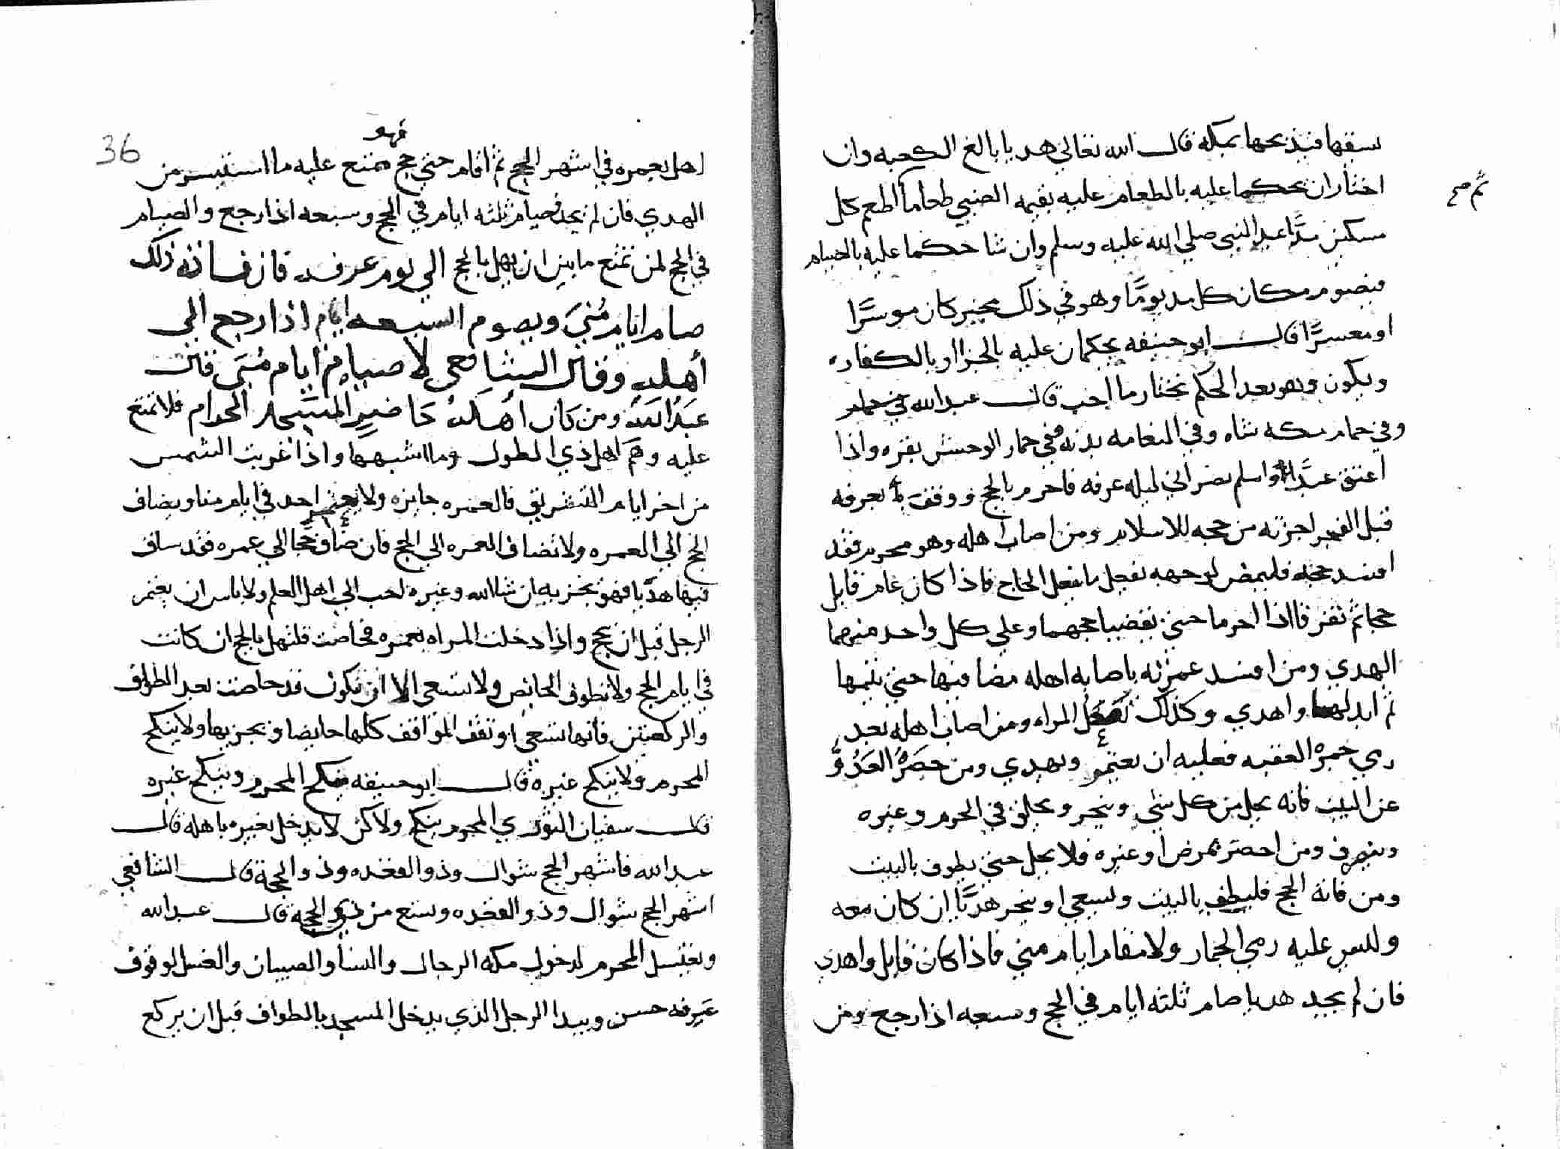 يسقها فيذبحها بمكة قال الله تعالى هديا بالغ الكعبه وان
اختار ان يحكما عليه بالطعام عليه بقيمه الصيد طعاما اطعم كل
ثم صح
مسكين مدًّا عبد النبي صلى الله عليه وسلم وان شا حكما عليه بالصيام
فيصوم مكان كل مد يومًا وهو في ذلك مخير كان موسرًا
او معسرًا قال ابو حنيفه يحكمان عليه بالجزا او بالكفاره
ويكون وهو بعد الحكم يختار ما احب قال عبد الله في حمام
وفي حمام مكه شاه وفي النعامه بدنه وفي حمار الوحش بقره واذا
اعتق عبدًا او اسلم نصراني ليله عرفه فاحرم بالحج ووقف بعرفه
قبل الفجر اجزته من حجه للاسلام ومن اصاب اهله وهو محرم فقد
افسد حجه فليمض لوجهه يفعل ما يفعل الحاج فاذا كان عام قابل
حجا ثم تفرقا اذا احرما حتى يقضيا حجهما وعلى كل واحد منهما
الهدي ومن افسد عمرته باصابه اهله مضا فيها حتى يتمها
ثم ابدلها واهدي وكذلك تفعل المراه ومن اصاب اهله بعد
رمي جمرة العقبه فعليه ان يعتمر ويهدي ومن حصره العدوُّ
عن البيت فانه يحل من كل شي وينحر ويحلق في الحرم وغيره
وينصرف ومن احصر بمرض او غيره فلا يحل حتى يطوف بالبيت
ومن فاته الحج فليطف بالبيت ويسعى او ينحر هديًا ان كان معه
وليس عليه رمي الجمار ولا مقام ايام منى فاذا كان قابل واهدي
فان لم يجد هديا صام ثلثه ايام في الحج وسبعه اذا رجع ومن
36
فهو
اهل بعمره في اشهر الحج ثم اقام حتى حج متمتع عليه ما استيسر من
الهدي فان لم يجد فصيام ثلثه ايام في الحج وسبعه اذا رجع والصيام
في الحج لمن تمتع ما بين ان يهل بالحج الي يوم عرفه فان فاته ذلك
صام ايام مُنَي ويصوم السبعه ايام اذا رجع الى
أهله وقال الشافعي لا صيام ايام مُنَى قال
عبدُ الله ومن كان اهله حاضر المسجد الحرام فلا تمتع
عليه وهم اهل ذي المطول وما اشبهها واذا غربت الشمس
من اخر ايام التشريق فالعمره جايزه ولا يعتمر احد في ايام منا ويضاف
الحج الي العمره ولا تضاف العمره الى الحج فان ضاف حجًا الي عمره فقد ساق
فيها هديًا فهو يجزيه ان شا الله وغيره احب الى اهل العلم ولا باس ان يعتمر
الرجل قبل ان يحج واذا دخلت المراه بعمره فحاضت فلتهل بالحج ان كانت
في ايام الحج ولا تطوف الحائض ولا تسعى الا ان تكون قد حاضت بعد الطواف
والركعتين فانها تسعى او تقف المواقف كلها حايضا ويجزيها ولا ينكح
المحرم ولا ينكح غيره قال ابو حنيفه ينكح المحرم وينكح غيره
قال سفيان الثوري المحرم ينكح ولاكن لا يدخل بغيره باهله قال
عبد الله فاشهر الحج شوال وذو القعده وذو الحجة قال الشافعي
اشهر الحج شوال وذو القعده وتسع من ذي الحجه قال عبد الله
ويغتسل المحرم لدخول مكه الرجال والنسا والصبيان والغسل لوقوف
عرفه حسن ويبدا الرجل الذي يدخل المسجد بالطواف قبل ان يركع